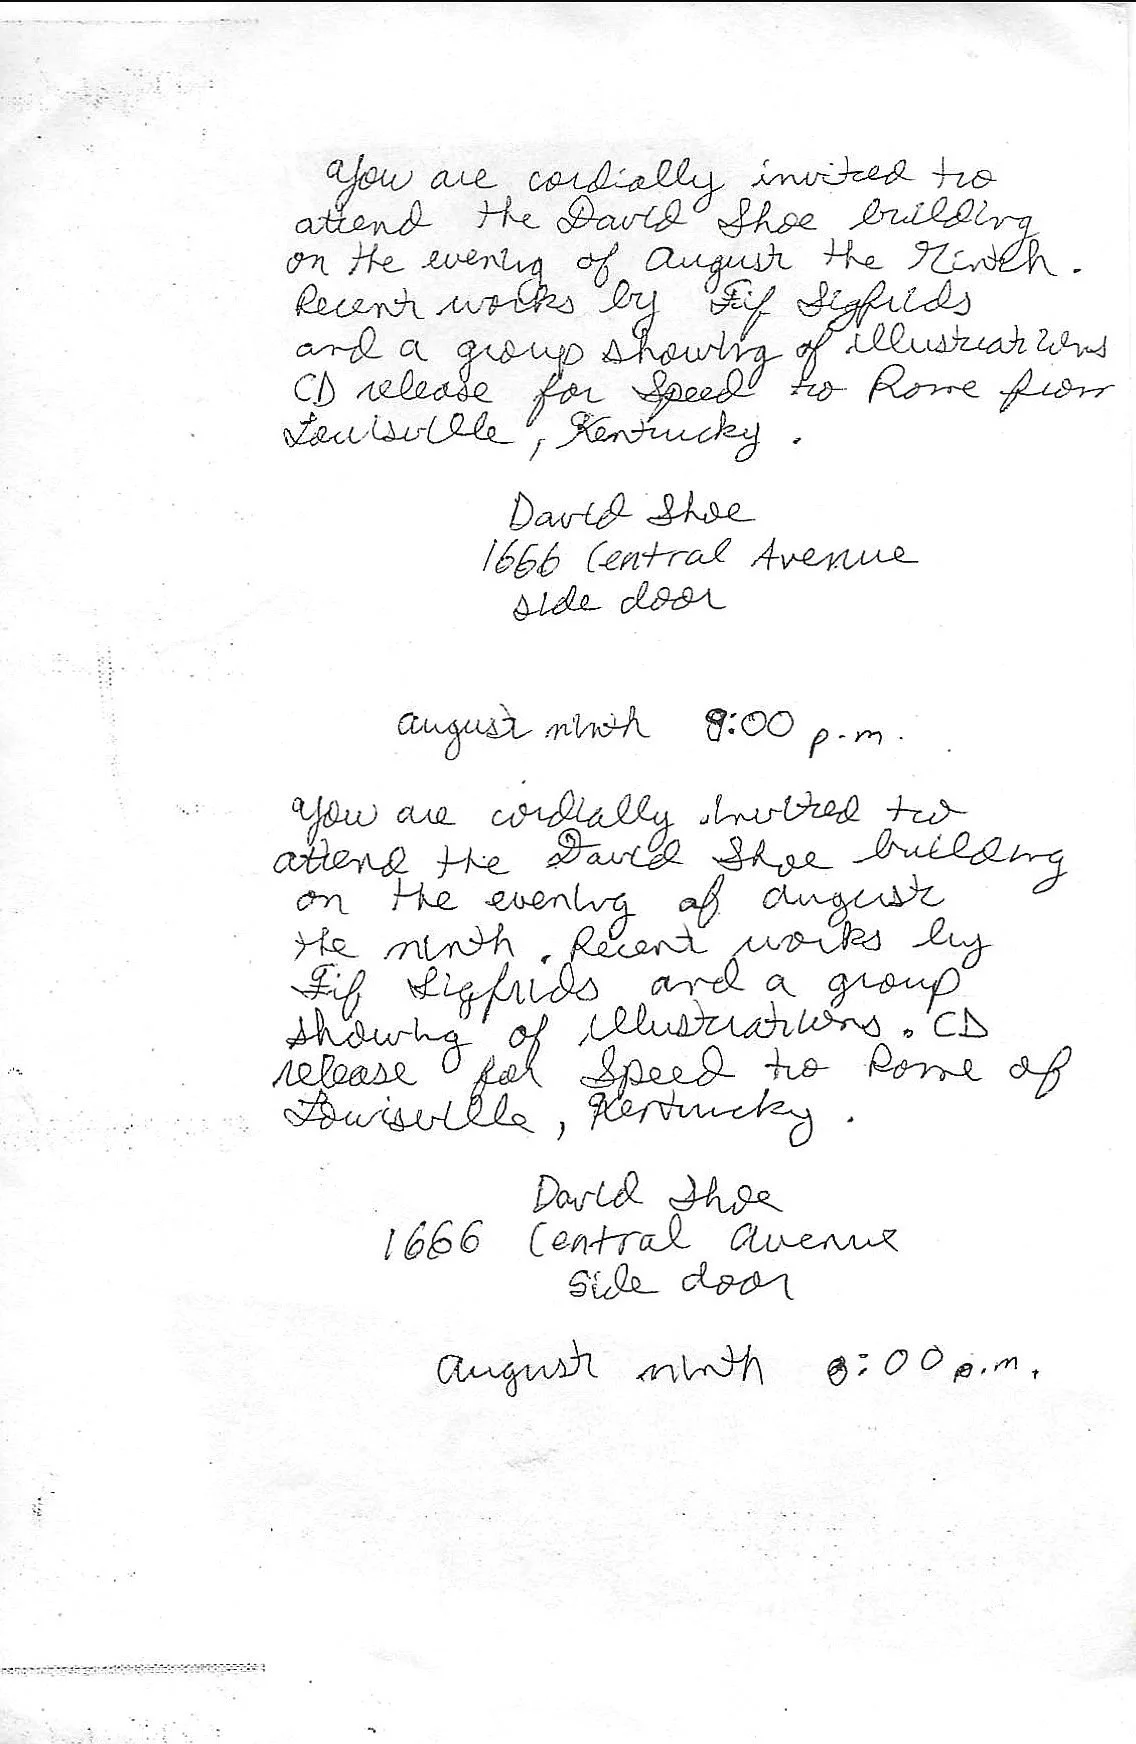 You are cordially invited to
attend the David Shoe building
on the evening of August the Ninth.
Recent works by Fif Sigfrids
and a group showing of illustrations
CD release for Speed to Rome from
Louisville, Kentucky.
David Shoe
1666 Central Avenue
side door
august ninth :00 p.m.
You are cordially invited to
attend the David Shoe building
on the evening of august
the ninth. Recent works by
Fif Sigfrids and a group
showing of illustrations. CD
release for Speed to Rome of
Louisville, Kentucky.
David Shoe
1666 Central Avenue
side door
august ninth 8:00 p.m.